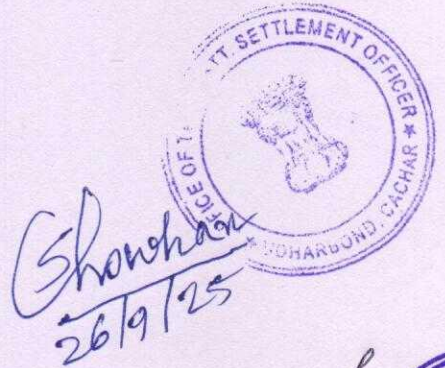 FICE OF T
TT. SETTLEMENT OFFICER ★
DHARBOND, CACHAR ★
Chowhan
26/9/25